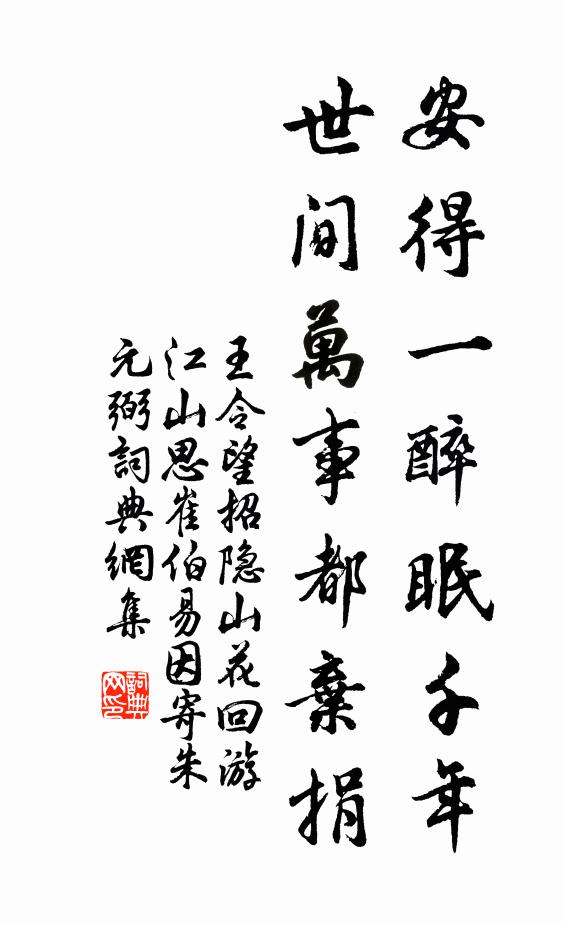 安得一醉眠千年
世间萬事都棄捐
王令望招隐山花回游
江山思崔伯易因寄朱
元弼詞典網集
詞典网印